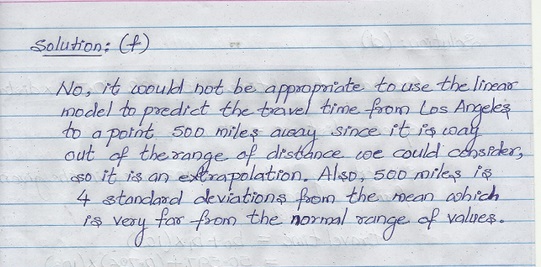 Solution: (f)
No, it would not be appropriate to use the linear
model to predict the travel time from Los Angeles
to a point 500 miles away since it is way
out of the range of distance we could consider,
so it is an extrapolation. Also, 500 miles is
4 standard deviations from the mean which
is very far from the normal range of values.